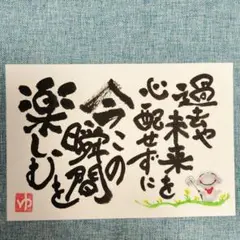 過去や
未来を
心配せずに
今この
瞬間を
楽しむ
ゆ